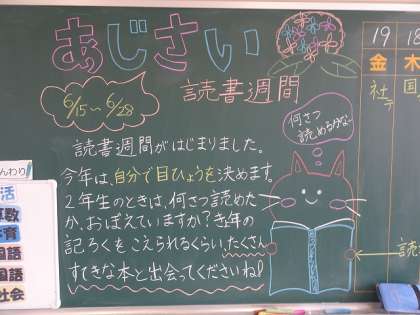 あじさい
読書週間
6/15〜6/28
読書週間がはじまりました。
今年は、自分で目ひょうを決めます。
2年生のときは、何さつ読めた
か、おぼえていますか？き年の
記ろくをこえられるくらい、たくさん
すてきな本と出会ってくださいね！
何さつ
読めるかな〜
19
金
社
18
木
国
んわり
活
算数
育
国語
国語
社会
読